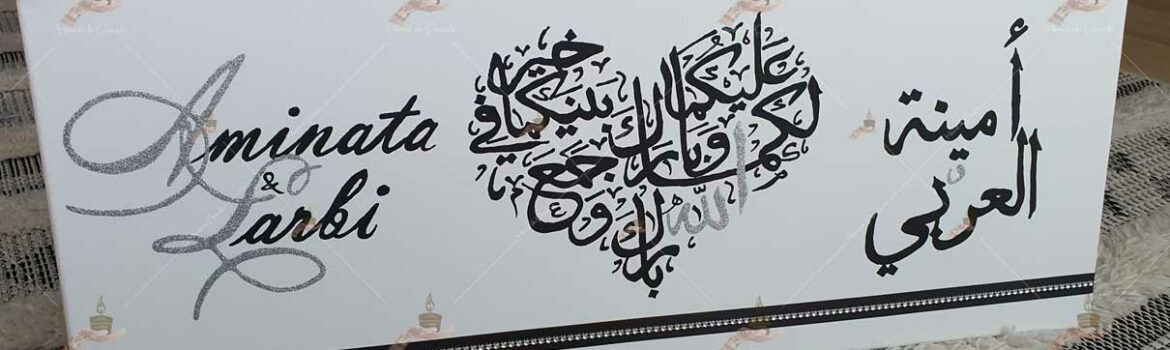 Aminata
&
Larbi
بارك الله لكما وبارك عليكما وجمع بينكما في خير
أمينة
العربي